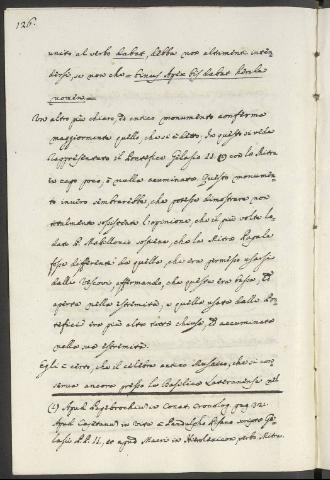 126.
unito al verbo dabat, debba non altrimenti inten-
dersi, se non che = bineus Apex bis dabat
nomen =
Un altro più chiaro, ed antico monumento conferma
maggiormente quello, che si è detto. In questo si vede
rappresentato il Pontefice Gelasio II (1) con la Mitra
in capo poco, e nulla acuminata. Questo monumen-
to invero sembrarebbe, che potesse dimostrare, non
totalmente sussistente l'opinione, che il più volte lo-
dato P. Mabillonio sostiene, che la Mitra Papale
fosse differente da quella, che era permesso usarsi
dalli Vescovi, affermando, che questa era bassa, ed
aperta nella estremità, e quella usata dalli Pon-
tefici era più alta tutta chiusa, ed accuminata
nella sua estremità.
Egli è certo, che il celebre antico Musaico, che si con-
serva ancora presso la Basilica Lateranense nel
(1) Apud Papebrochium in Conat. Cronolog. pag. 32.
Apud Cajetanum in vita a Pandulpho Pisano scripta Ge-
lasii P. P. II., et apud Macri in Hierolexicon, verb. Mitra.